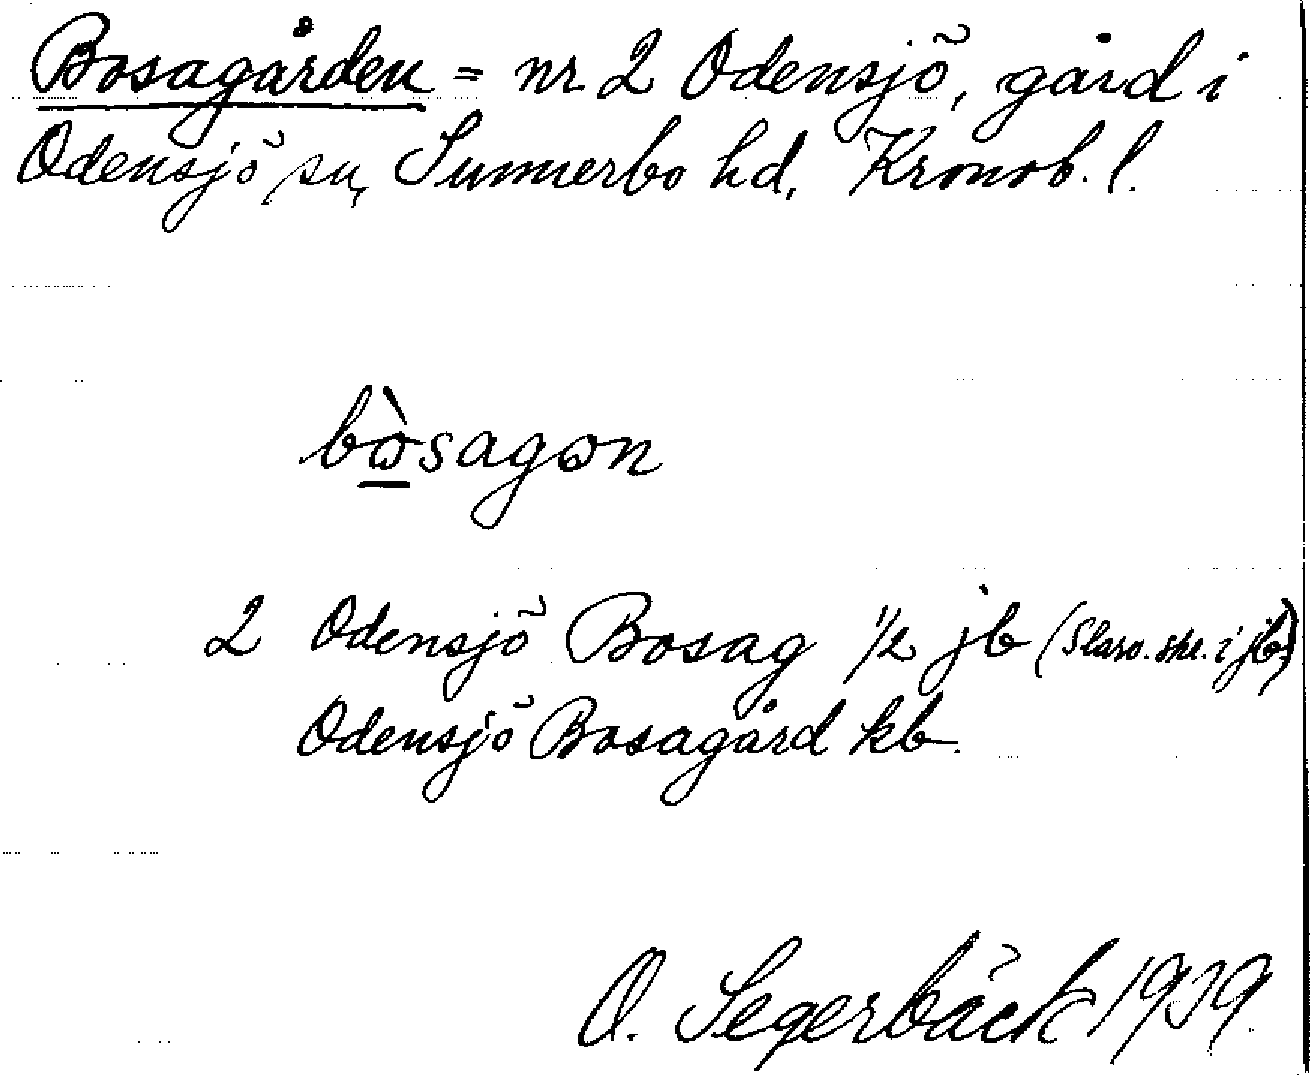 Bosagården = nr 2 Odensjö, gård i
Odensjö sn, Sunnerbo hd, Kronob. l.
bὼ̲sagωn
2 Odensjö Bosag 1/2 jb (Slarv. skr. i jb)
Odensjö Bosagård kb.
O. Segerbäck 1939.